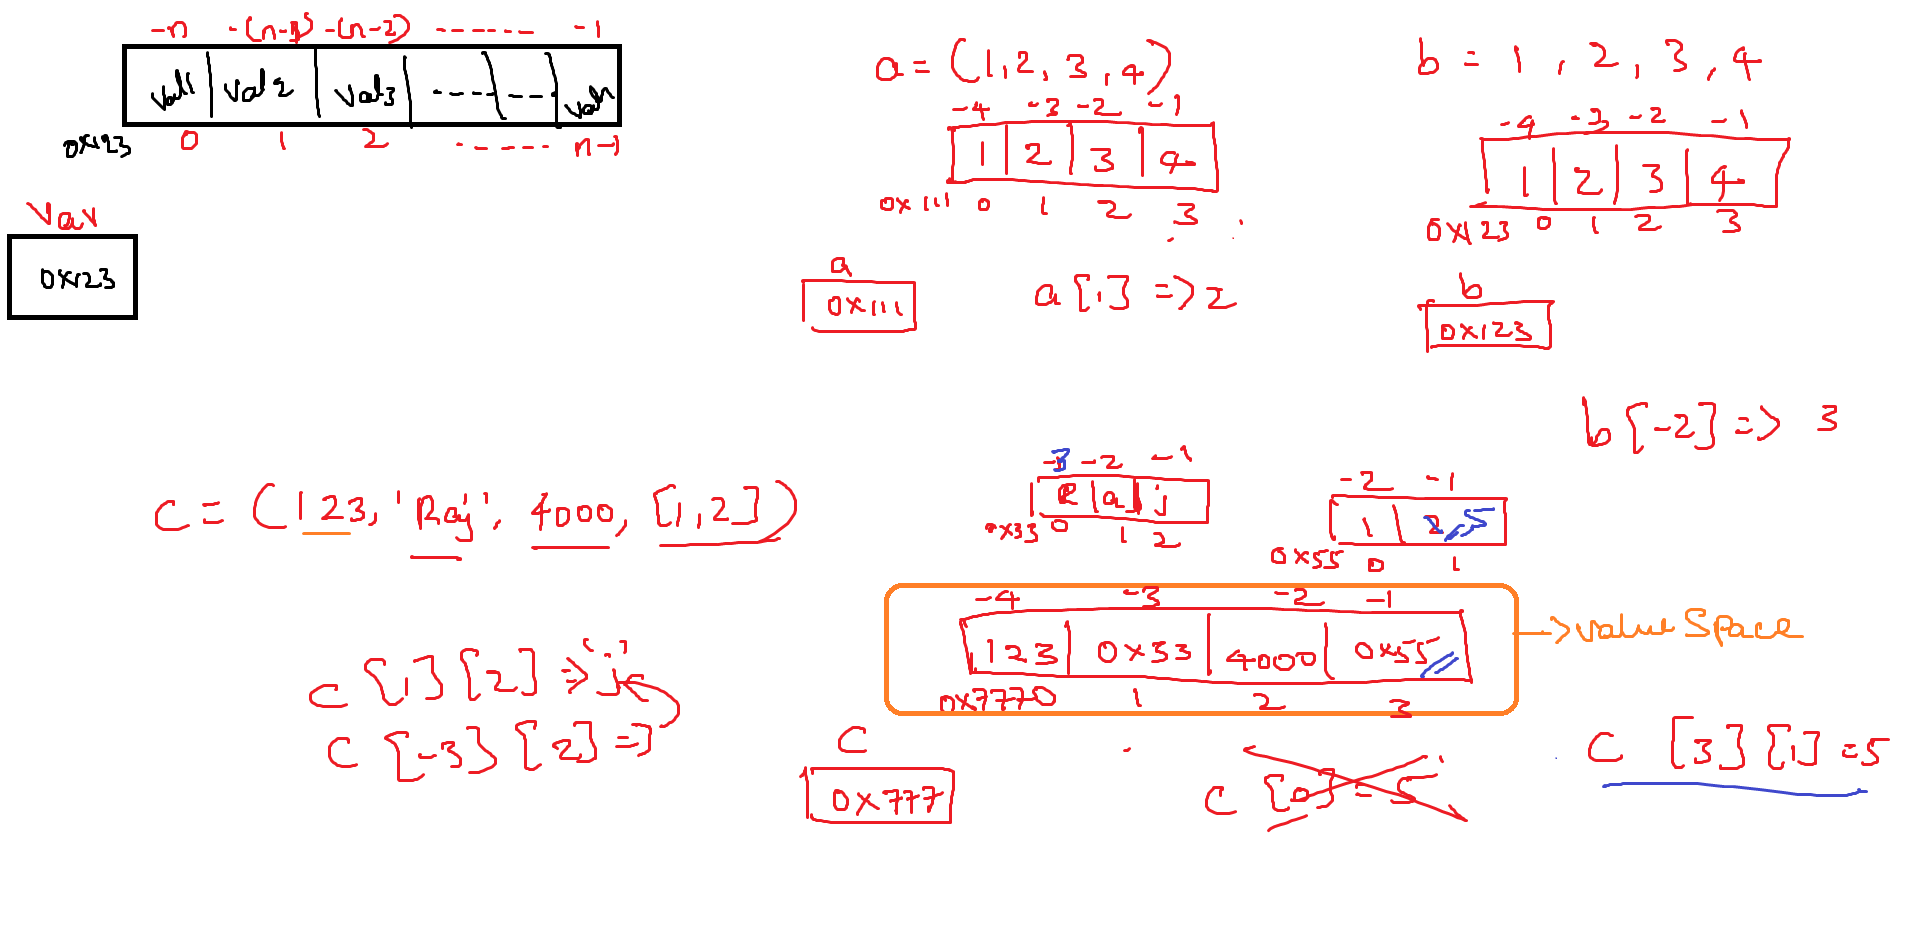 -n -(n-1) -(n-2) ------ -1
val1 val2 val3 ---- --- valn
0x123 0 1 2 ------ n-1
Var
0x123
a = (1, 2, 3, 4)
-4 -3 -2 -1
1 2 3 4
0x111 0 1 2 3
a
0x111
a[1] => 2
b = 1, 2, 3, 4
-4 -3 -2 -1
1 2 3 4
0x123 0 1 2 3
b
0x123
b[-2] => 3
C = (123, 'Raj', 4000, [1,2])
C[1][2] => 'j'
C[-3][2] => J
-3 -2 -1
R a j
0x33 0 1 2
-2 -1
1 2 5
0x55 0 1
-4 -3 -2 -1
123 0x33 4000 0x55
0x777 0 1 2 3
-> value Space
C
0x777
C[0] = 5
C[3][1] = 5